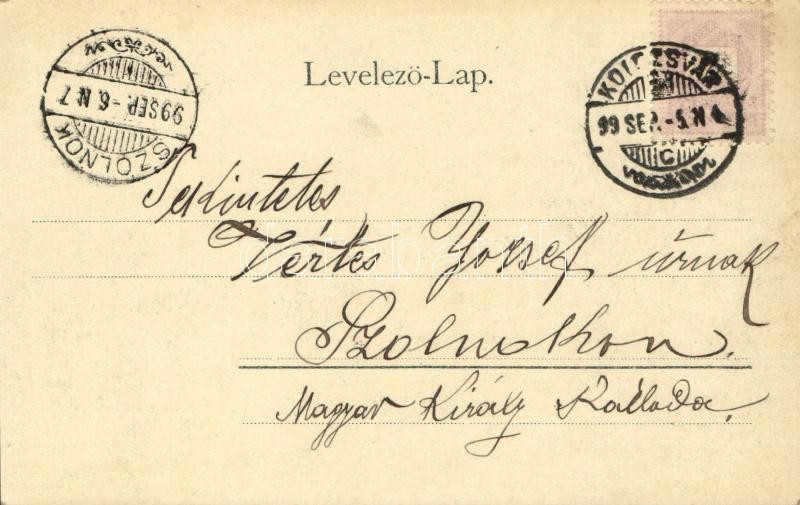 Levelező-Lap.
SZOLNOK
99 SEP. -6. N 7
KOLOZSVÁR
99 SEP. -5. N
C
Tekintetes
Vértes József úrnak
Szolnokon.
Magyar Király Kálloda.
darabanth